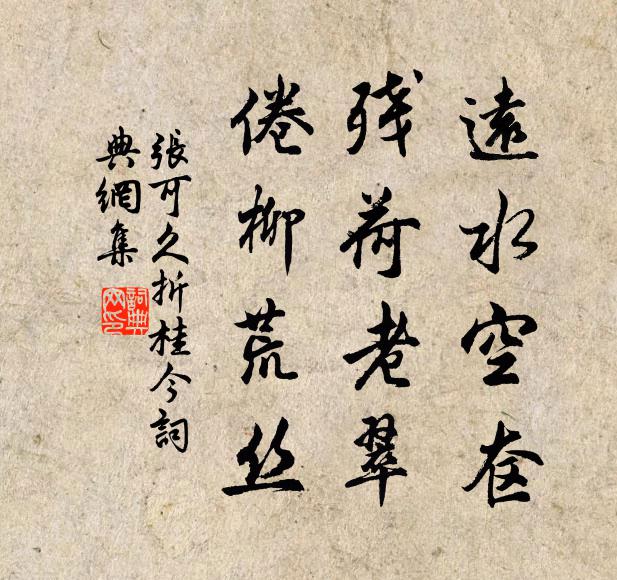 遠水空奁
残荷老翠
倦柳荒丝
張可久折桂今詞
典網集
詞典网印